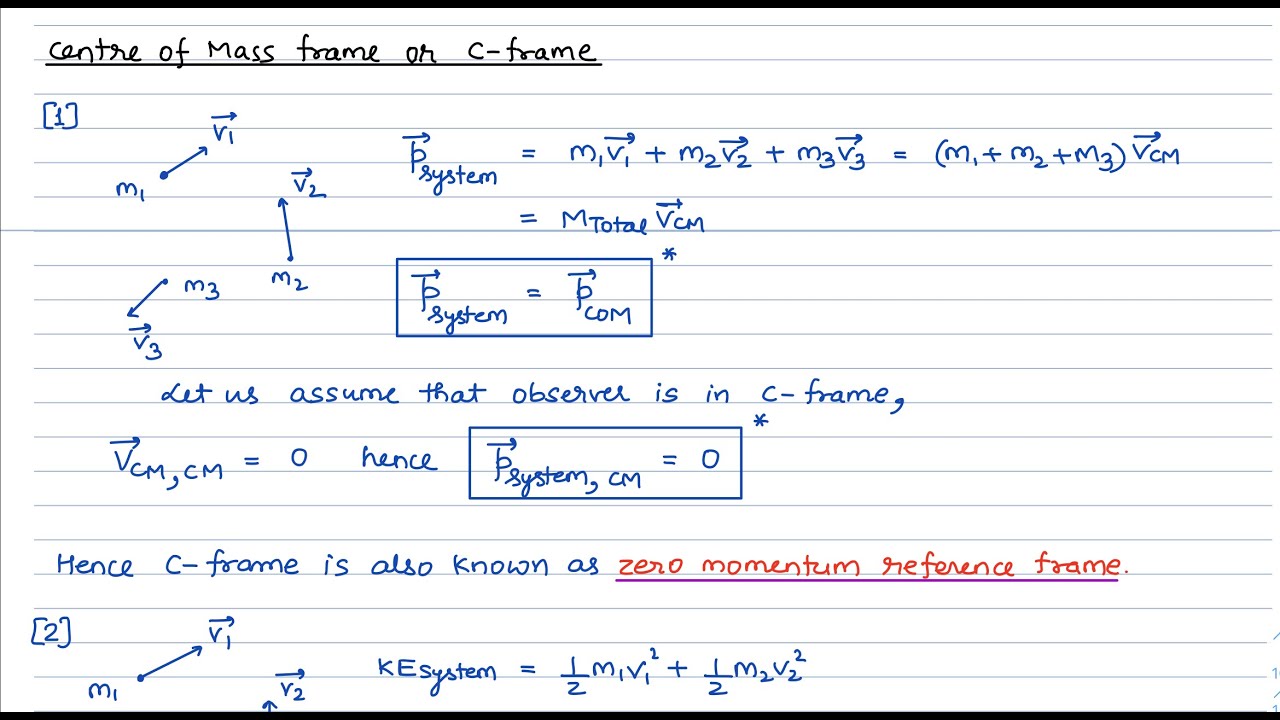 Centre of Mass frame or C-frame
[1]
v⃗₁
m₁
v⃗₂
m₂
m₃
v⃗₃
p⃗system = m₁v⃗₁ + m₂v⃗₂ + m₃v⃗₃ = (m₁+m₂+m₃) v⃗CM
= MTotal v⃗CM
p⃗system = p⃗COM *
Let us assume that observer is in C-frame,
v⃗CM,CM = 0 hence p⃗system, CM = 0 *
Hence C-frame is also known as zero momentum reference frame.
[2]
v⃗₁
m₁
v⃗₂
KEsystem = ½ m₁v₁² + ½ m₂v₂²